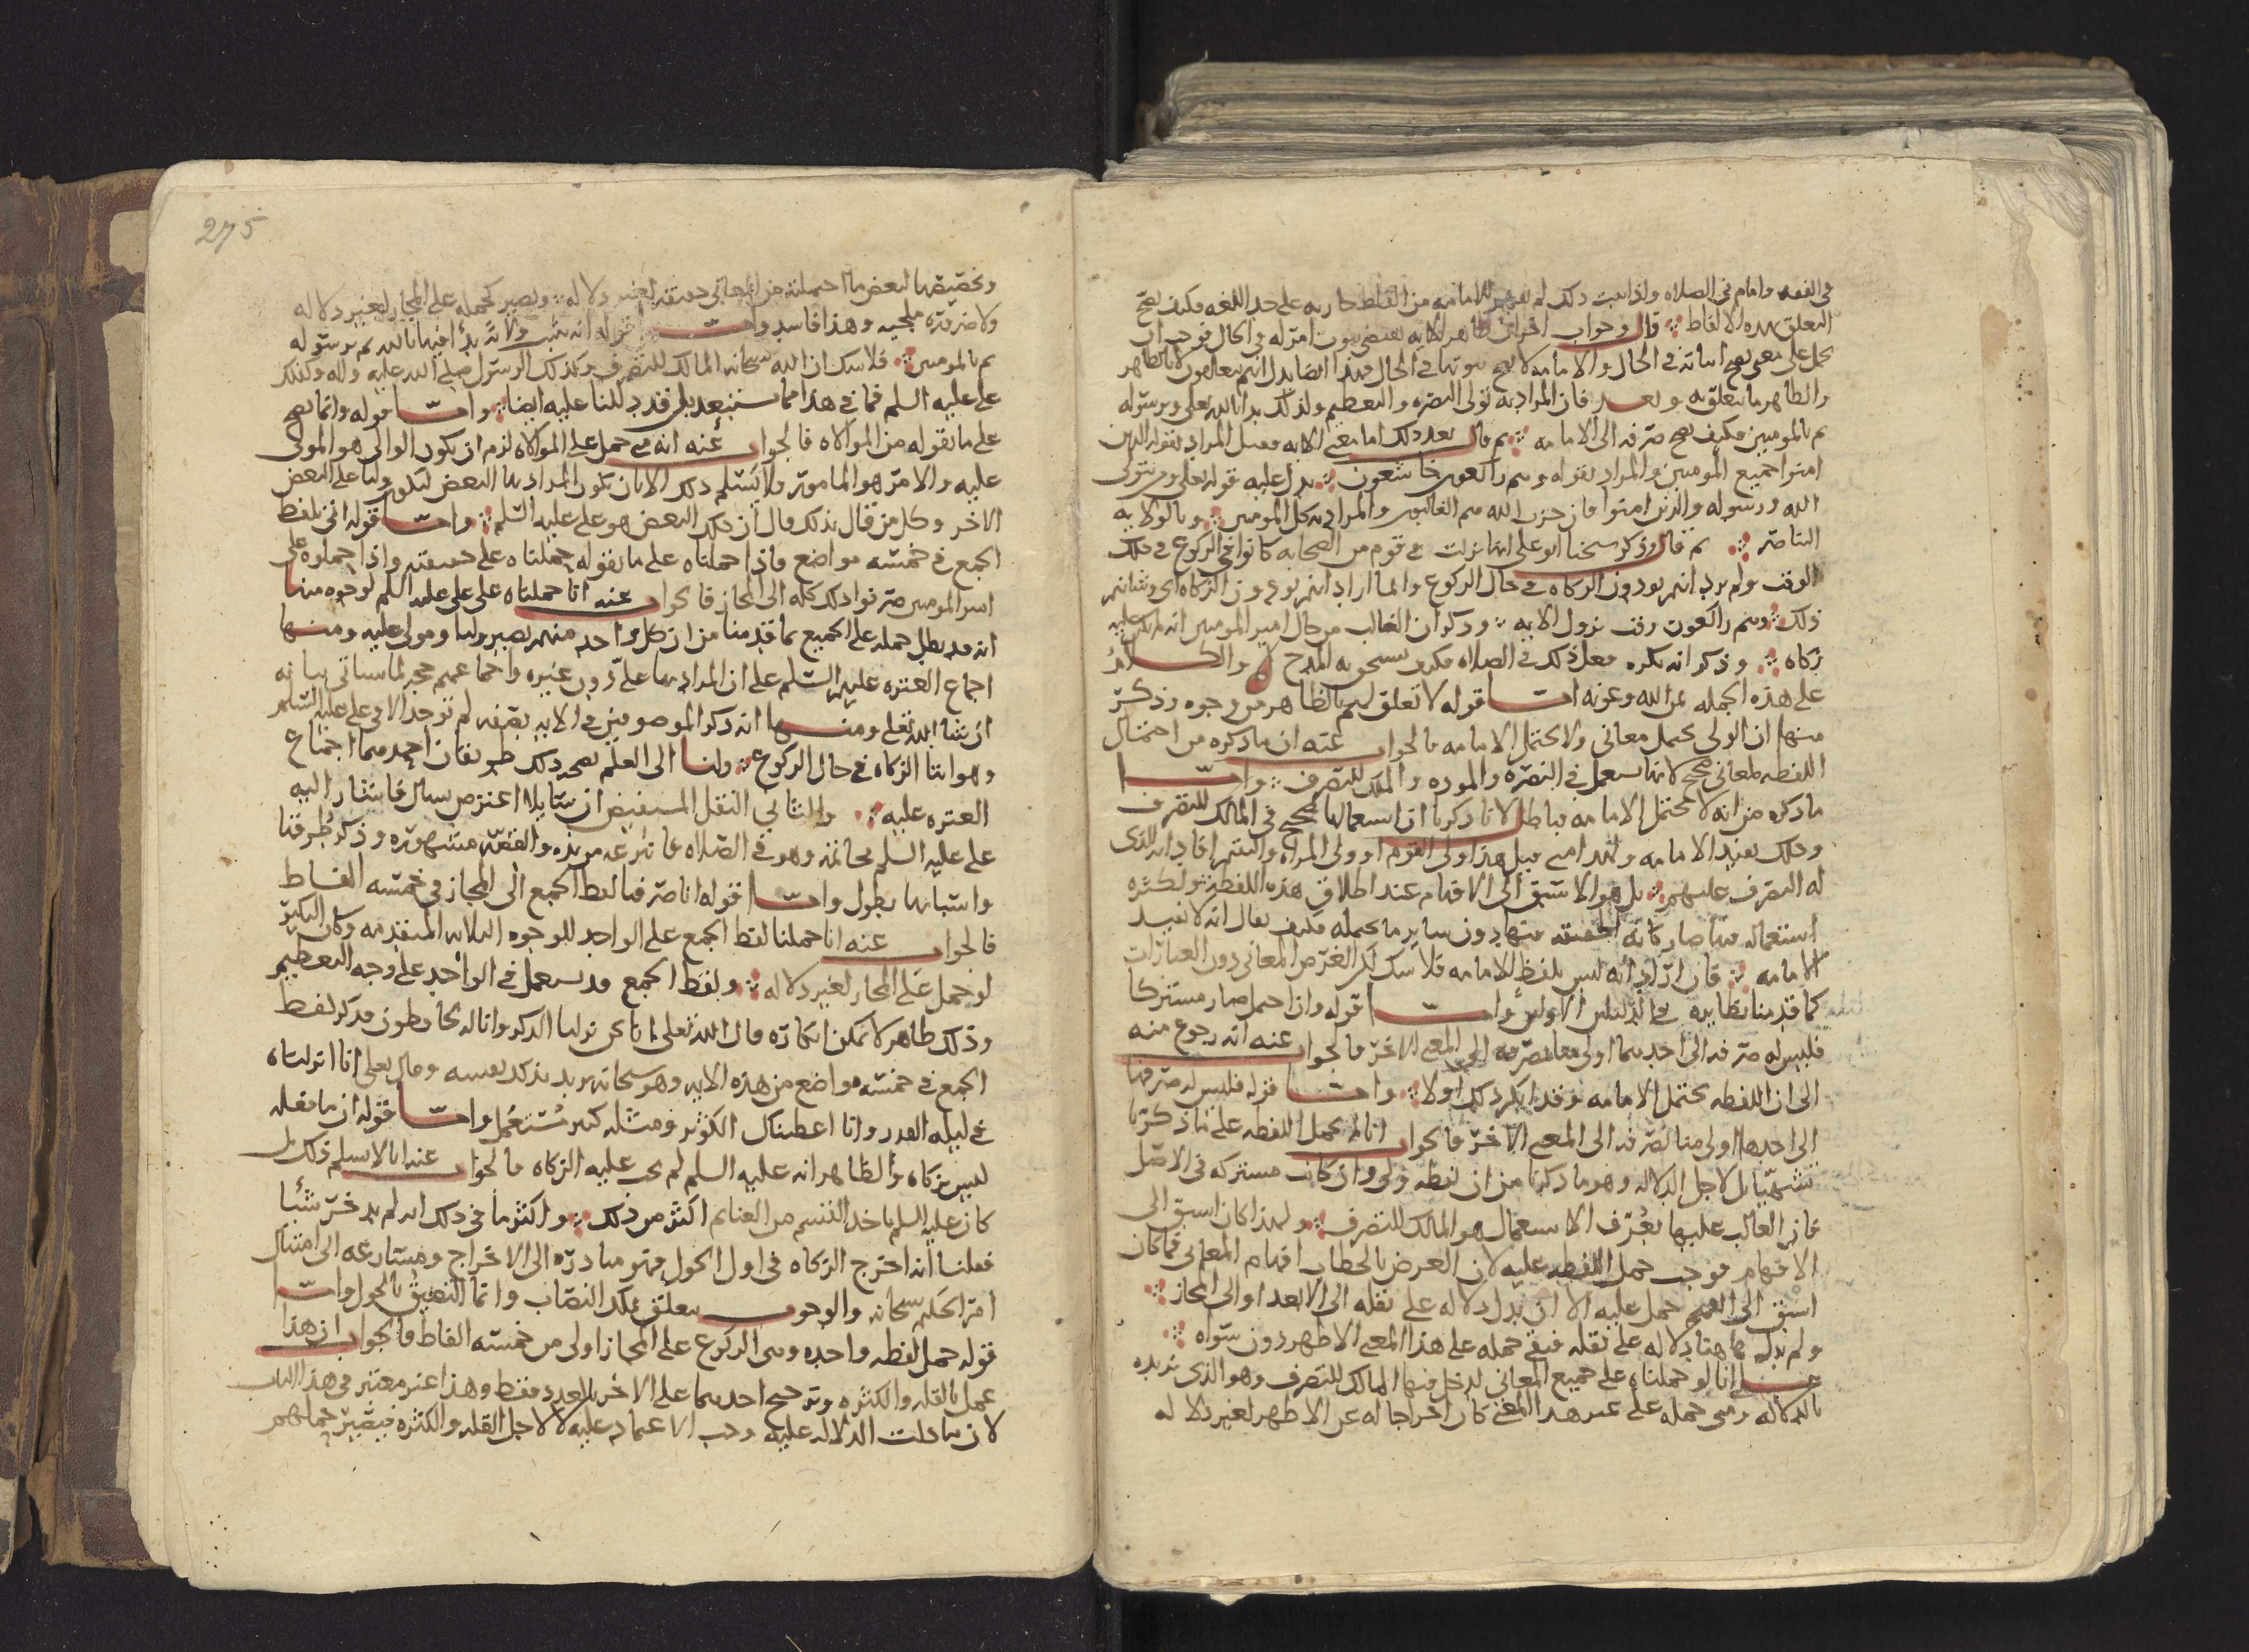 في الفقه وامام في الصلاه واذا ثبت ذلك لم للامامه من القاظ جاريه على حد اللغه فكيف يصح
التعلق بهذه الالفاظ قال وجواب اخر ان ظاهر الايه يقتضي ثبوت امر له في الحال فوجب ان
يحمل على معنى يصح اثباته في الحال والامامه لا يصح ثبوتها في الحال فهذا ايضا يدل انهم يتعلقون لا بالظاهر
والظاهر ما يتعلق به وبعد فان المراد به تولى النصره والتعظيم ولذلك بدا بالله تعلى وبرسوله
ثم بالمومنين فكيف يصح صرفه الى الامامه ثم قال بعد ذلك اما معنى الايه فقيل المراد بقوله الذين
امنوا جميع المومنين والمراد بقوله وهم راكعون خاشعون يدل عليه قوله تعلى ومن يتولى
الله ورسوله والذين امنوا فان حزب الله هم الغالبون والمراد به كل المومنين وبالولايه
الناصر ثم قال وذكر شيخنا ابو علي انها نزلت في قوم من الصحابه كانوا في الركوع في ذلك
الوقت ولم يرد انهم يودون الزكاه في حال الركوع وانما اراد انهم يودون الزكاه اي وشانهم
ذلك وهم راكعون وقت نزول الايه وذكر ان الغالب من حال امير المومنين انه لم تكن عليه
زكاه وذكر انه يكره فعل ذلك في الصلاه فكيف يستحق به المدح والكلام
على هذه الجمله بمن الله وعونه اما قوله لا تعلق لهم بالظاهر من وجوه وذكر
منها ان الولي يحتمل معاني ولا يحتمل الامامه فالجواب عنه ان ما ذكره من احتمال
اللفظه لمعاني صحيح لانها تستعمل في النصره والموده والملك للتصرف واما
ما ذكره من انه لا يحتمل الامامه فباطل لانا ذكرنا ان استعمالها صحيح في المالك للتصرف
وذلك يفيد الامامه ولهذا متى قيل هذا ولي القوم او ولي المراه واليتيم افاد انه الذي
له التصرف عليهم بل هو الاسبق الى الافهام عند اطلاق هذه اللفظه ولكثره
استعماله فيها صار كانه الحقيقه فيها دون ساير ما تحمله فكيف يقال انه لا يفيد
الامامه فان اراد انه ليس بلفظ الامامه فلا شك لكن الغرض المعاني دون العبارات
كما قدمنا نظايره في الدليلين الاولين واما قوله وان احتمل صار مشتركا
فليس له صرفه الى احدهما اولى منا بصرفه الى المعنى الاخر فالجواب عنه انه رجوع منه
الى ان اللفظه تحتمل الامامه وقد انكر ذلك اولا واما قوله فليس له صرفها
الى احدها اولى منا بصرفه الى المعنى الاخر فالجواب انا لم نحمل اللفظه على ما ذكرنا
تشهيا بل لاجل الدلاله وهو ما ذكرنا من ان لفظه ولي وان كانت مشتركه في الاصل
فان الغالب عليها بعرف الاستعمال هو المالك للتصرف ولهذا كان اسبق الى
الافهام فوجب حمل اللفظه عليه لان الغرض بالخطاب افهام المعاني فما كان
اسبق الى الفهم حمل عليه الا ان يدل دلاله على نقله الى الابعد او الى المجاز
ولم يدل هاهنا دلاله على نقله فبقي حمله على هذا المعنى الاظهر دون سواه
على انا لو حملناه على جميع المعاني لدخل فيها المالك للتصرف وهو الذي نريده
بالدلاله ومتى حمله على غير هذا المعنى كان اخراجا له عن الاظهر لغير دلاله
275
وتخصيصها لبعض ما احتملته من المعاني حقيقه لغير دلاله ويصير كحمله على المجاز لغير دلاله
ولا ضروره ملجيه وهذا فاسد واما قوله انه يثبت ولايه بدا فيها بالله ثم برسوله
ثم بالمومنين فلا شك ان الله سبحانه المالك للتصرف وكذلك الرسول صلى الله عليه واله وكذلك
علي عليه السلم فما في هذا مما يستبعد بل قد دللنا عليه ايضا واما قوله وانما يصح
على ما نقوله من الموالاه فالجواب عنه انه متى حمل على الموالاه لزم ان يكون الوالي هو المولى
عليه والامر هو المامور ولا يسلم ذلك الا بان يكون المراد بها البعض ليكون وليا على البعض
الاخر وكل من قال بذلك قال ان ذلك البعض هو علي عليه السلم واما قوله اتى بلفظ
الجمع في خمسه مواضع فاذا حملناه على ما نقوله حملناه على حقيقته واذا حملوه على
امير المومنين صرفوا ذلك كله الى المجاز فالجواب عنه انا حملناه على علي عليه السلم لوجوه منها
انه قد بطل حمله على الجميع بما قدمنا من ان كل واحد منهم يصير وليا ومولى عليه ومنها
اجماع العتره عليهم السلم على ان المراد بها علي دون غيره واجماعهم حجه لما سياتي بيانه
ان شا الله تعلى ومنها انه ذكر الموصوفين في الايه بصفه لم توجد الا في علي عليه السلم
وهو ايتا الزكاه في حال الركوع ولنا الى العلم بصحه ذلك طريقان احدهما اجماع
العتره عليه والثاني النقل المستفيض ان سايلا اعترض يسال فاشار اليه
علي عليه السلم بخاتمه وهو في الصلاه فانتزعه من يده والقصه مشهوره وذكر طرقها
واسبابها يطول واما قوله انا صرفنا لفظ الجمع الى المجاز في خمسه الفاظ
فالجواب عنه انا حملنا لفظ الجمع على الواحد للوجوه الثلاثه المتقدمه وكان النكير
لو حمل على المجاز لغير دلاله ولفظ الجمع قد يستعمل في الواحد على وجه التعظيم
وذلك ظاهر لا يمكن انكاره قال الله تعلى انا نحن نزلنا الذكر وانا له لحافظون فذكر لفظ
الجمع في خمسه مواضع من هذه الايه وهو سبحانه يريد بذلك نفسه وقال تعلى انا انزلناه
في ليله القدر وانا اعطيناك الكوثر ومثله كثير مستعمل واما قوله ان ما فعله
ليس بزكاه والظاهر انه عليه السلم لم تجب عليه الزكاه فالجواب عنه انا لا نسلم ذلك بل
كان عليه السلم ياخذ القسم من الغنايم اكثر من ذلك واكثر ما في ذلك انه لم يدخر شيئا
فعلنا انه اخرج الزكاه في اول الحول فهو مبادره الى الاخراج ومسارعه الى امتثال
امر الحكيم سبحانه والوجوب يتعلق بملك النصاب وانما التضييق بالحول واما
قوله حمل لفظه واحده وهي الركوع على المجاز اولى من خمسه الفاظ فالجواب ان هذا
عمل بالقله والكثره وترجيح احدهما على الاخر بالعدد فقط وهذا غير معتبر في هذا الباب
لان ما دلت الدلاله عليه وجب الاعتماد عليه لا لاجل القله والكثره فيصير حملهم